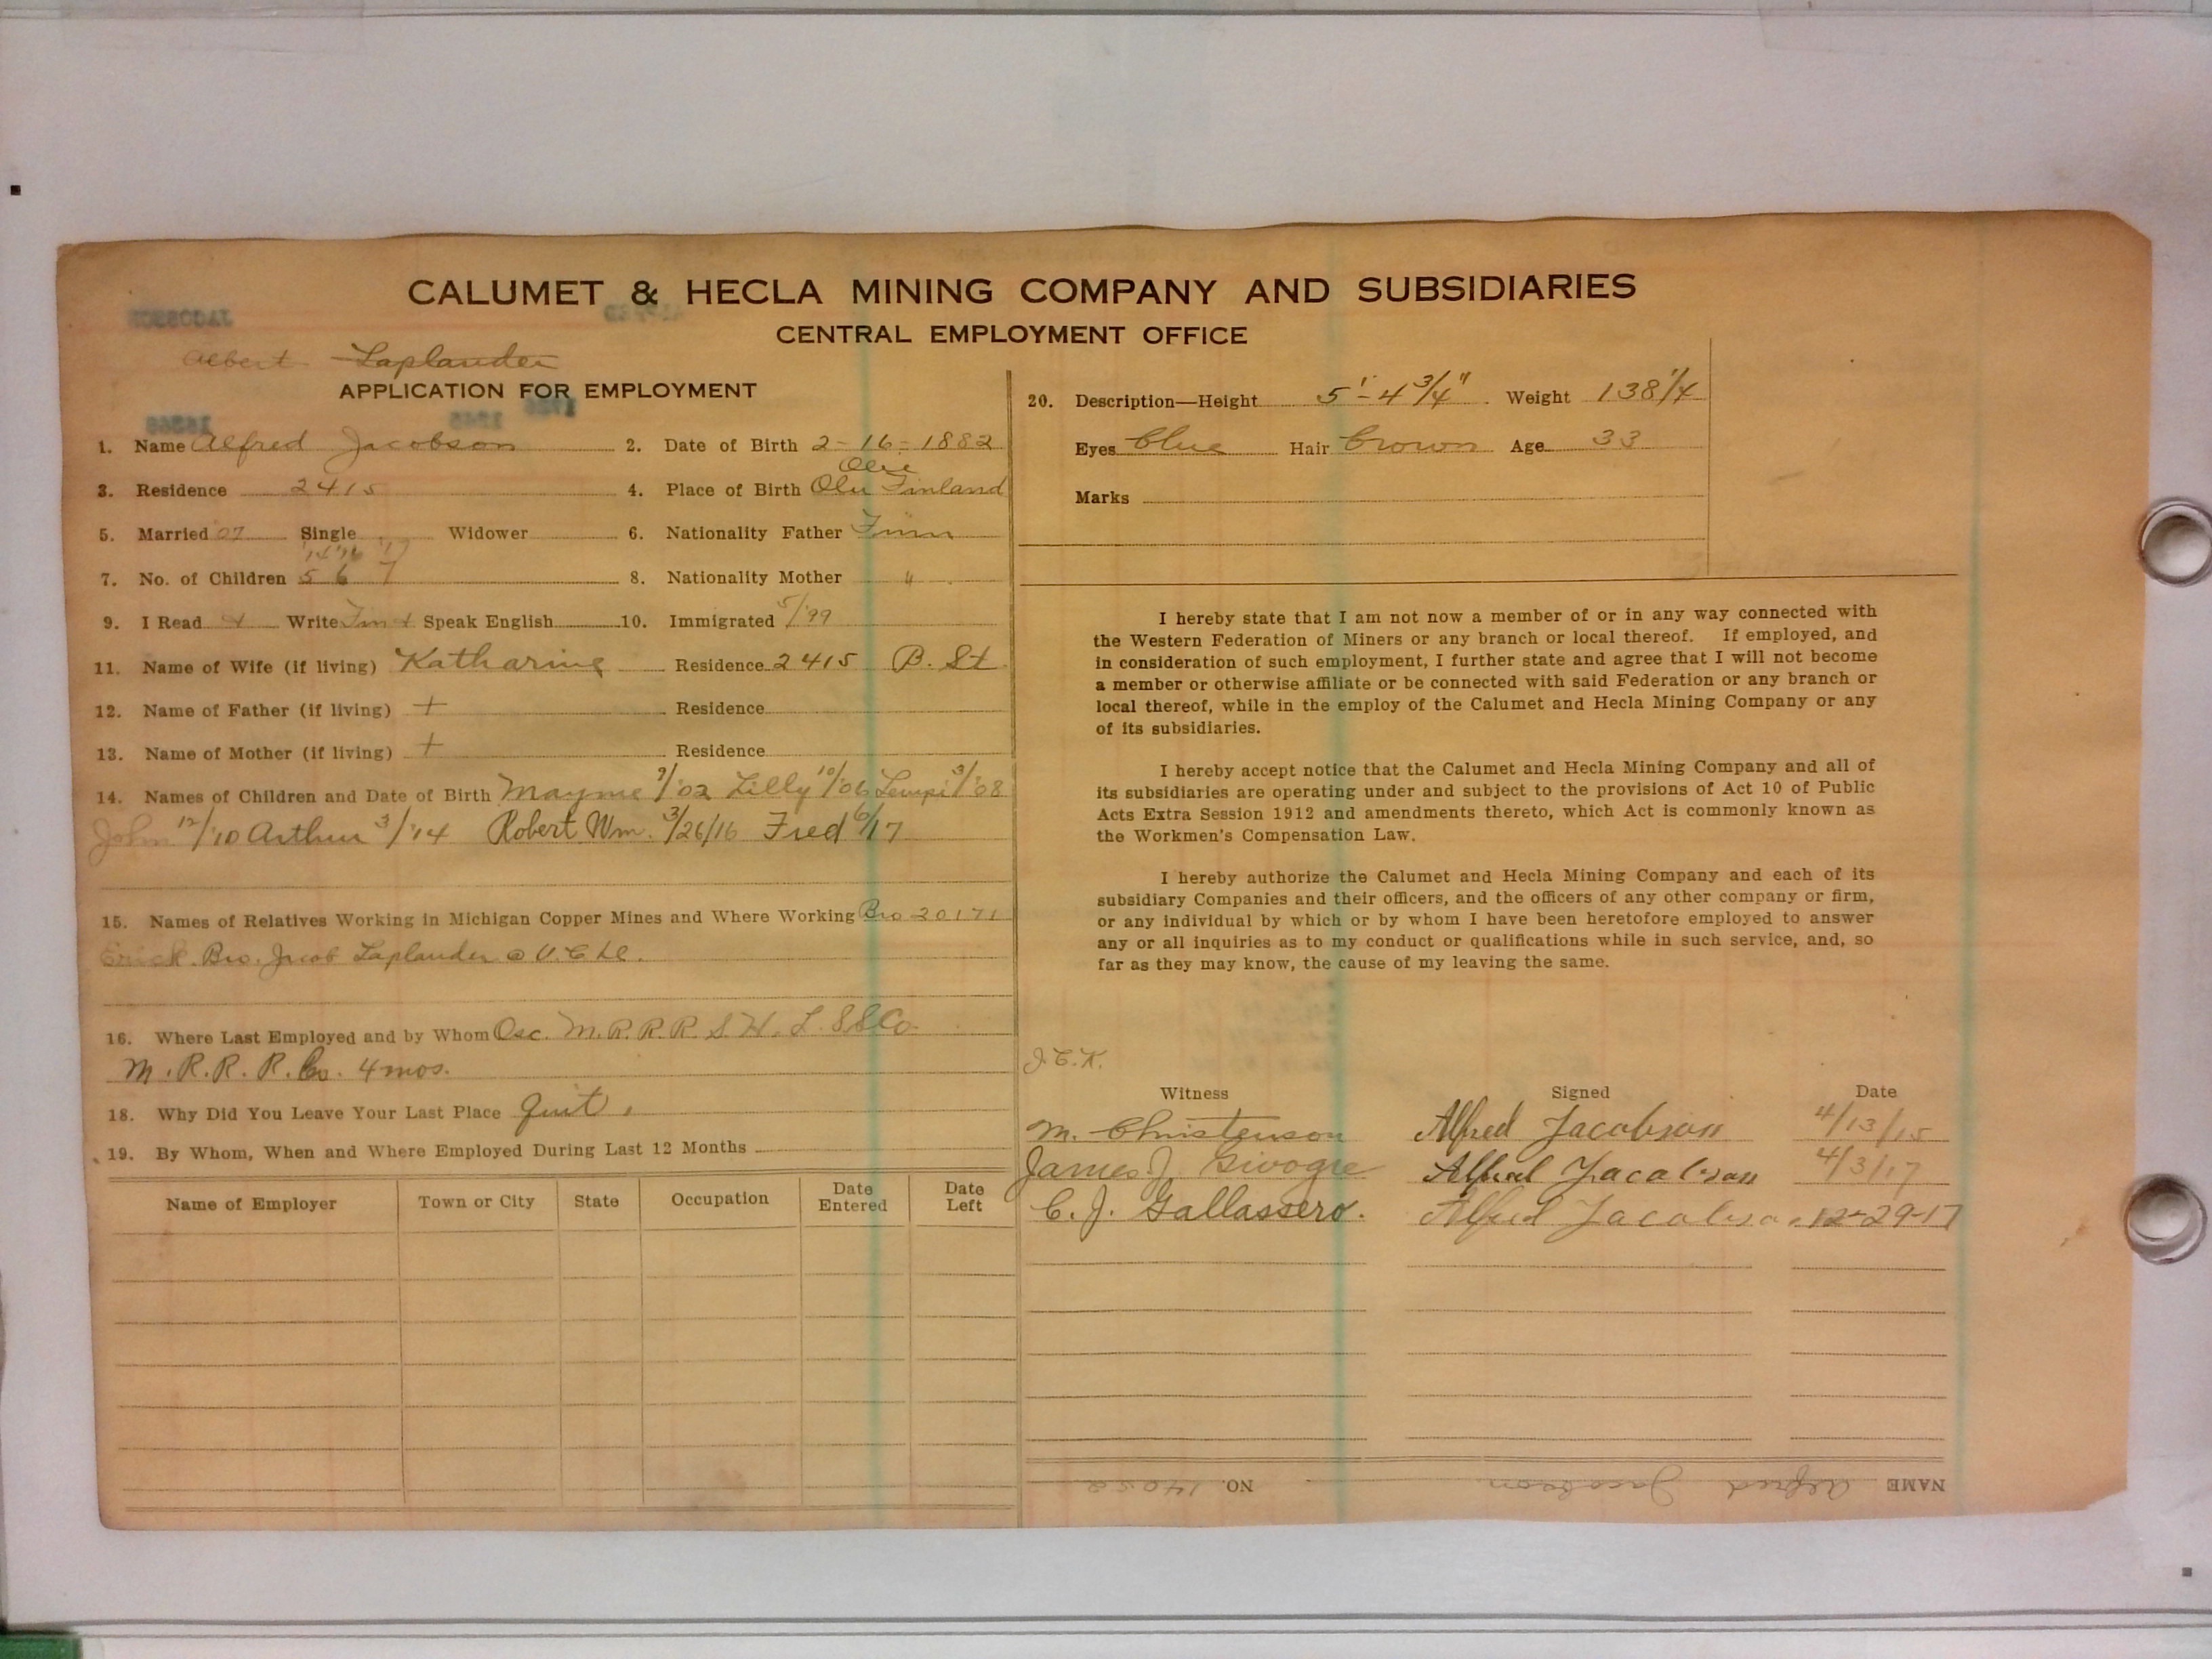 CALUMET & HECLA MINING COMPANY AND SUBSIDIARIES
CENTRAL EMPLOYMENT OFFICE
Albert Laplander
APPLICATION FOR EMPLOYMENT
1. Name Alfred Jacobson 2. Date of Birth 2-16-1882
3. Residence 2415 4. Place of Birth Olu Finland
5. Married '07 Single Widower 6. Nationality Father Finn
'14 '16 '17
7. No. of Children 5 6 7 8. Nationality Mother "
9. I Read + Write Finn + Speak English 10. Immigrated 5/'99
11. Name of Wife (if living) Katharine Residence 2415 B. St.
12. Name of Father (if living) + Residence
13. Name of Mother (if living) + Residence
14. Names of Children and Date of Birth Mayme 9/'02 Lilly 10/'06 Lempi 3/'08
John 12/'10 Arthur 3/'14 Robert Wm. 3/26/16 Fred 6/17
15. Names of Relatives Working in Michigan Copper Mines and Where Working Bro 20171
Erick. Bro. Jacob Laplander @
16. Where Last Employed and by Whom Osc. M.R.R.R. S.H. L. S S Co.
M.R.R.R. Co. 4 mos.
18. Why Did You Leave Your Last Place Quit.
19. By Whom, When and Where Employed During Last 12 Months
Name of Employer Town or City State Occupation Date Entered Date Left
20. Description—Height 5'-4 3/4" Weight 138 1/4
Eyes Blue Hair Brown Age 33
Marks
I hereby state that I am not now a member of or in any way connected with
the Western Federation of Miners or any branch or local thereof. If employed, and
in consideration of such employment, I further state and agree that I will not become
a member or otherwise affiliate or be connected with said Federation or any branch or
local thereof, while in the employ of the Calumet and Hecla Mining Company or any
of its subsidiaries.
I hereby accept notice that the Calumet and Hecla Mining Company and all of
its subsidiaries are operating under and subject to the provisions of Act 10 of Public
Acts Extra Session 1912 and amendments thereto, which Act is commonly known as
the Workmen's Compensation Law.
I hereby authorize the Calumet and Hecla Mining Company and each of its
subsidiary Companies and their officers, and the officers of any other company or firm,
or any individual by which or by whom I have been heretofore employed to answer
any or all inquiries as to my conduct or qualifications while in such service, and, so
far as they may know, the cause of my leaving the same.
J.C.K.
Witness Signed Date
M. Christenson Alfred Jacobson 4/13/15
James J. Alfred Jacobson 4/3/17
C. J. Gallassero. Alfred Jacobson 12-29-17
NAME Alfred Jacobson NO. 14052